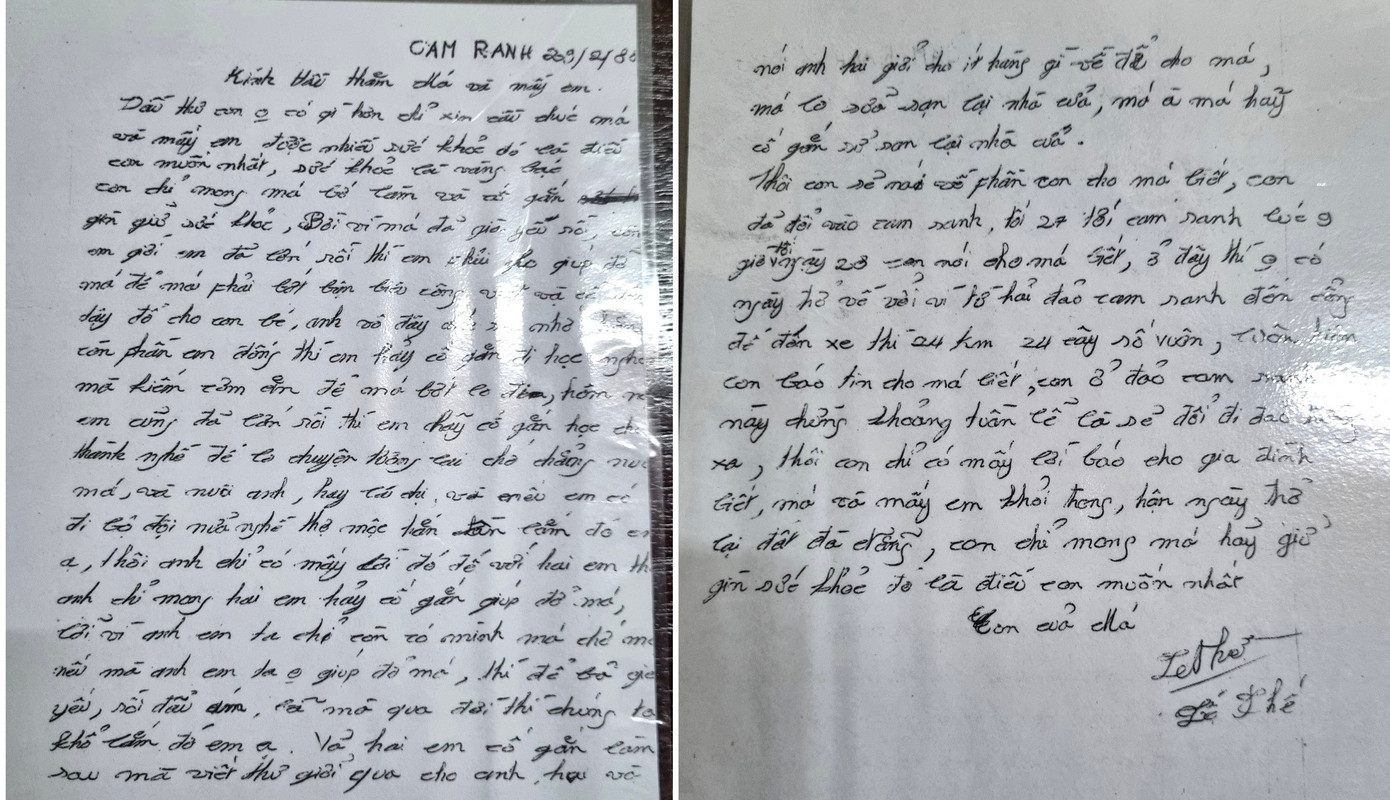 CAM RANH 29/2/88
Kính thăm Má và mấy em.
Đầu thư con o có gì hơn chỉ xin cầu chúc má
và mấy em được nhiều sức khoẻ đó là điều
con muốn nhất, sức khoẻ là vàng bạc
con chỉ mong má bớ làm và cố gắn
gìn giữ sức khoẻ, Bởi vì má đã già yếu rồi,
em giới em đã lớn rồi thì em phải giúp đở
má để má phải bớt bịn công và
dậy đổ cho con bé, anh vô đây nhớ
còn phần em đống thì em hảy cố gắn đi học nghề
mà kiếm cơm ăn để má bớt lo
em cũng đã lớn rồi thì em hãy cố gắn học
thành nghề để lo chuyện tương lai chớ chẳng
má, và nuôi anh, hay là chị, và em có
đi bộ đội nửa nghề thợ mộc lắm đó em
a, thôi anh chỉ có mấy lời đó để với hai em
anh chỉ mong hai em hảy cố gắn giúp đở má,
bởi vì anh em ta chỉ còn có mình má chớ
nếu mà anh em ta o giúp đở má, thì để già
yếu, rồi đẩu ốm, mà qua đời thì chúng ta
khổ lắm đó em a. Và hai em cố gắn làm
sau mà viết thư giởi qua cho anh hai và
nói anh hai giởi cho ít hàng gì về để cho má,
má lo sửa sạn lại nhà cửa, má à má hãy
cố gắn sử sạn lại nhà cửa.
Thôi con sẻ về phần con cho má biết, con
đã đổi vào cam ranh, tối 27 tới cam ranh lúc 9
giờ tối ngày 28 con nói cho má biết, ở đây thì o có
ngày thở về với vì từ hải đảo cam ranh đến cổng
để đến xe thì 24 km 24 cây số vuôn,
con báo tin cho má biết, con ở đảo cam ranh
này chừng khoảng tuần lể là sẻ đổi đi đảo
xa, thôi con chỉ có mấy lời báo cho gia đình
biết, má và mấy em khỏi trong, hận ngày thở
lại đất đà nẳng, con chỉ mong má hảy giử
gìn sức khoẻ đó là điều con muốn nhất
Con của Má
Lê Thế
Lê Thế